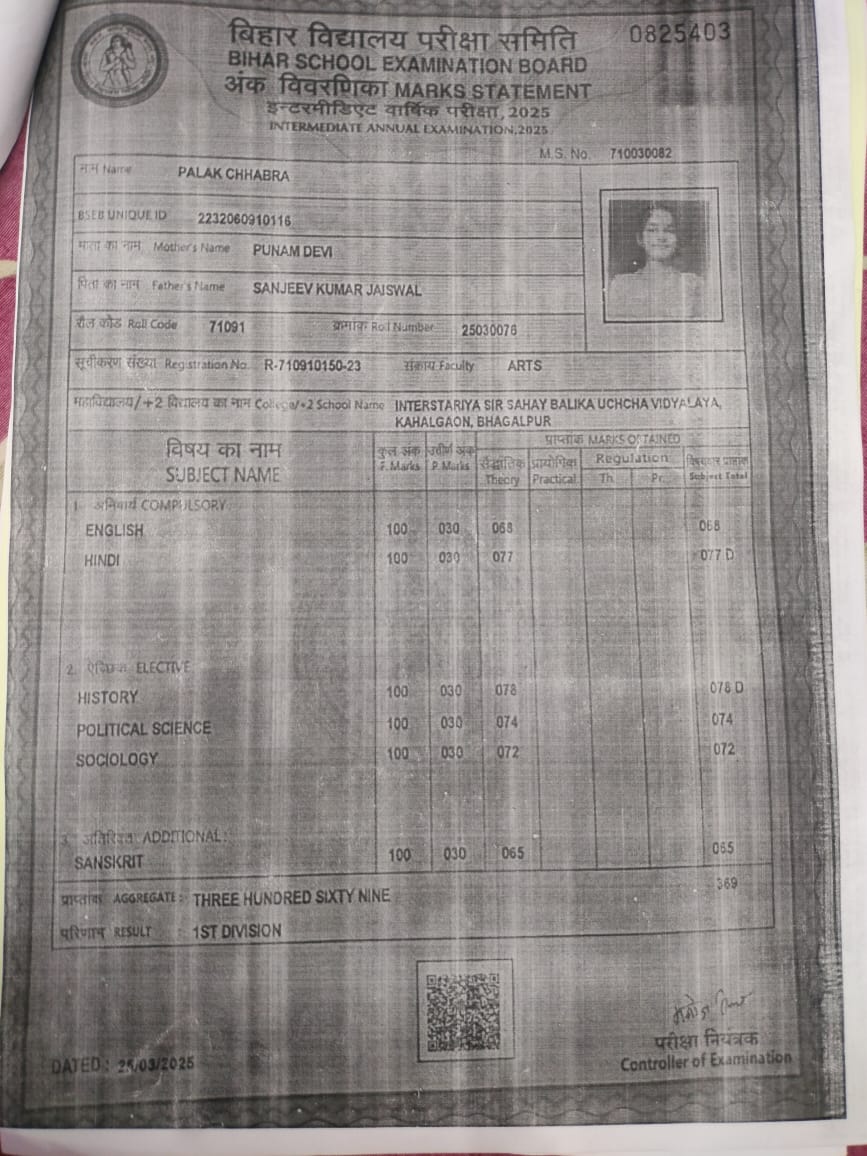 बिहार विद्यालय परीक्षा समिति 0825403
BIHAR SCHOOL EXAMINATION BOARD
अंक विवरणिका MARKS STATEMENT
इन्टरमीडिएट वार्षिक परीक्षा, 2025
INTERMEDIATE ANNUAL EXAMINATION, 2025
M.S. No. 710030082
नाम Name PALAK CHHABRA
BSEB UNIQUE ID 2232060910116
माता का नाम Mother's Name PUNAM DEVI
पिता का नाम Father's Name SANJEEV KUMAR JAISWAL
रौल कोड Roll Code 71091 क्रमांक Roll Number 25030076
सूचीकरण संख्या Registration No. R-710910150-23 संकाय Faculty ARTS
महाविद्यालय/+2 विद्यालय का नाम College/+2 School Name INTERSTARIYA SIR SAHAY BALIKA UCHCHA VIDYALAYA,
KAHALGAON, BHAGALPUR
विषय का नाम कुल अंक उत्तीर्ण अंक प्राप्तांक MARKS OBTAINED
SUBJECT NAME F. Marks P. Marks सैद्धांतिक प्रायोगिक Regulation
Theory Practical Th. Pr. Subject Total
1. अनिवार्य COMPULSORY
ENGLISH 100 030 068 068
HINDI 100 030 077 077 D
2. ऐच्छिक ELECTIVE
HISTORY 100 030 078 078 D
POLITICAL SCIENCE 100 030 074 074
SOCIOLOGY 100 030 072 072
3. अतिरिक्त ADDITIONAL:
SANSKRIT 100 030 065 065
प्राप्तांक AGGREGATE: THREE HUNDRED SIXTY NINE 369
परिणाम RESULT : 1ST DIVISION
परीक्षा नियंत्रक
DATED : 25/03/2025 Controller of Examination